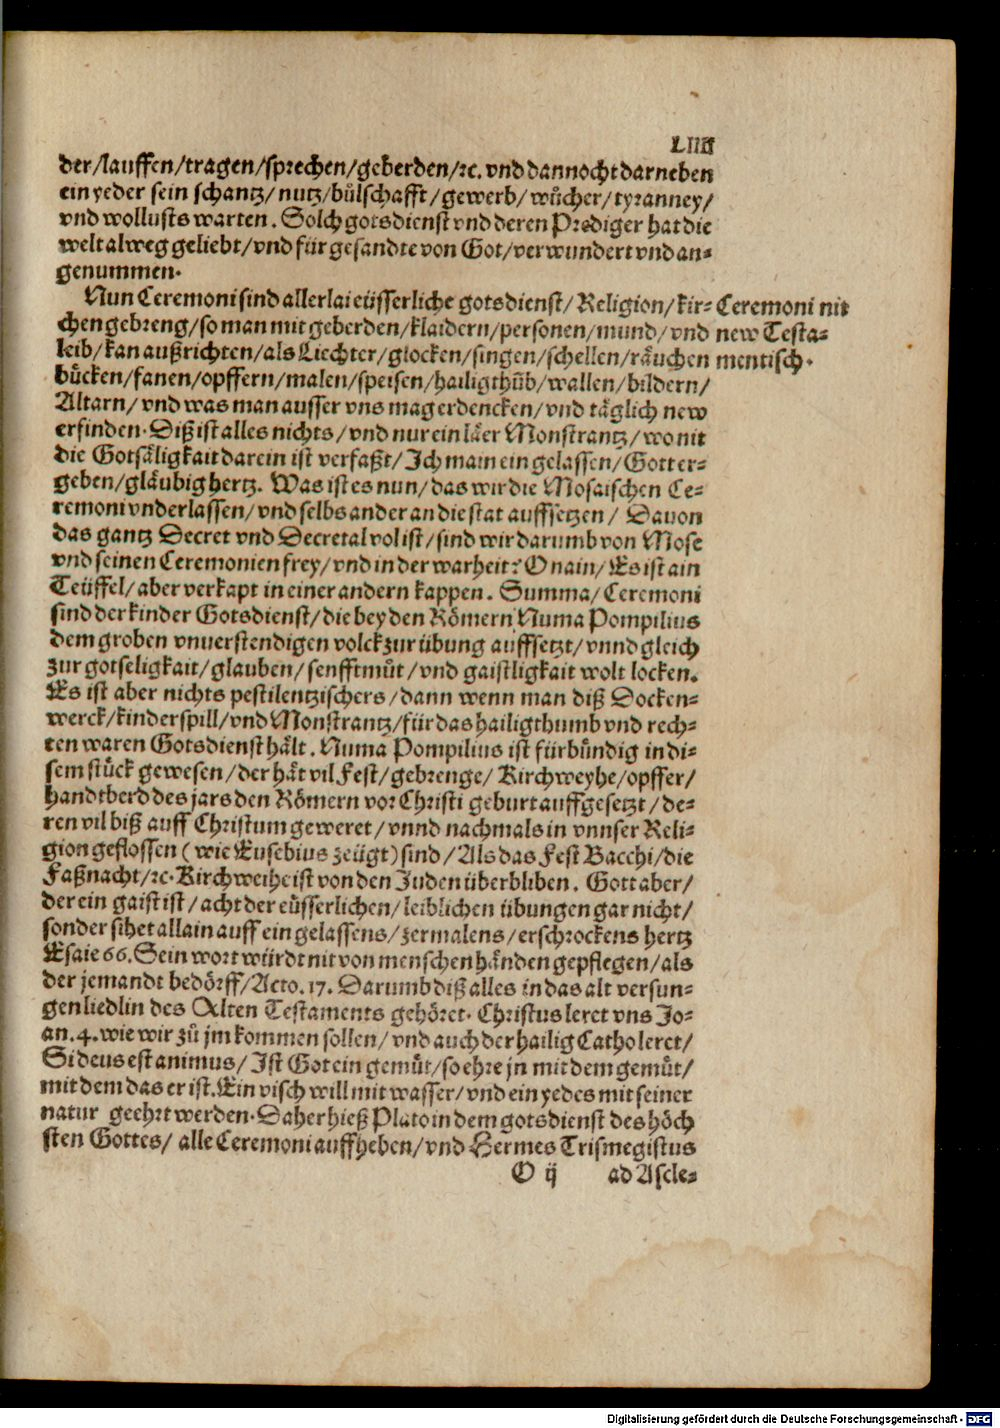 LIIII
der/lauffen/tragen/sprechen/geberden/ꝛc. vnd dannocht darneben
ein yeder sein schantz/nutz/bůlschafft/gewerb/wůcher/tyranney/
vnd wollusts warten. Solch gotsdienst vnd deren Prediger hat die
welt alweg geliebt/vnd für gesandte von Got/verwundert vnd an-
genummen.
Nun Ceremoni sind allerlai eüsserliche gotsdienst/Religion/kir-
chengebreng/so man mit geberden/klaidern/personen/mund/vnd
leib/kan außrichten/als Liechter/glocken/singen/schellen/räuchen
bücken/fanen/opffern/malen/speisen/hailigthůb/wallen/bildern/
Altarn/vnd was man ausser vns mag erdencken/vnd täglich new
erfinden. Diß ist alles nichts/vnd nur ein läer Monstrantz/wo nit
die Gotsäligkait darein ist verfaßt/Ich main ein gelassen/Gotter-
geben/gläubig hertz. Was ist es nun/das wir die Mosaischen Ce-
remoni vnderlassen/vnd selbs ander an die stat auffsetzen/ Dauon
das gantz Decret vnd Decretal vol ist/sind wir darumb von Mose
vnd seinen Ceremonien frey/vnd in der warheit? O nain/Es ist ain
Teüffel/aber verkapt in einer andern kappen. Summa/Ceremoni
sind der kinder Gotsdienst/die bey den Römern Numa Pompilius
dem groben vnuerstendigen volck zur übung auffsetzt/vnnd gleich
zur gotseligkait/glauben/senfftmůt/vnd gaistligkait wolt locken.
Es ist aber nichts pestilentzischers/dann wenn man diß Docken-
werck/kinderspill/vnd Monstrantz/für das hailigthumb vnd rech-
ten waren Gotsdienst hält. Numa Pompilius ist fürbündig in di-
sem stück gewesen/der hät vil Fest/gebrenge/Kirchweyhe/opffer/
handtberd des jars den Römern vor Christi geburt auffgesetzt/de-
ren vil biß auff Christum geweret/vnnd nachmals in vnnser Reli-
gion geflossen (wie Eusebius zeügt) sind/Als das Fest Bacchi/die
Faßnacht/ꝛc. Kirchweihe ist von den Juden überbliben. Gott aber/
der ein gaist ist/acht der eüsserlichen/leiblichen übungen gar nicht/
sonder sihet allain auff ein gelassens/zermalens/erschrockens hertz
Esaie 66. Sein wort würdt nit von menschen händen gepflegen/als
der jemandt bedörff/Acto. 17. Darumb diß alles in das alt versun-
gen liedlin des Alten Testaments gehöret. Christus leret vns Jo-
an. 4. wie wir zů jm kommen sollen/vnd auch der hailig Catho leret/
Si deus est animus/Ist Got ein gemüt/so ehre jn mit dem gemüt/
mit dem das er ist. Ein visch will mit wasser/vnd ein yedes mit seiner
natur geehrt werden. Daher hieß Plato in dem gotsdienst des höch
sten Gottes/ alle Ceremoni auffheben/vnd Hermes Trismegistus
O ij ad Ascle-
Ceremoni nit
new Testa-
mentisch.
Digitalisierung gefördert durch die Deutsche Forschungsgemeinschaft - DFG